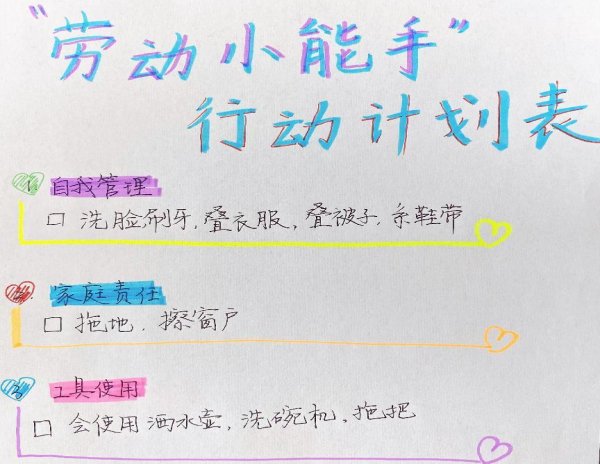 "劳动小能手"
行动计划表
1. 自我管理
□ 洗脸刷牙,叠衣服,叠被子,系鞋带
2. 家庭责任
□ 拖地,擦窗户
3 工具使用
□ 会使用洒水壶,洗碗机,拖把